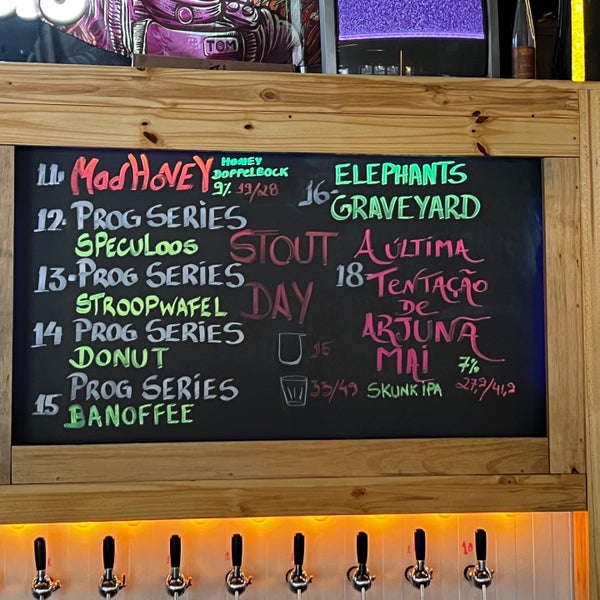 TOM
11. MadHoNEY HONEY DOPPELBOCK
9% 19/28
12- PROG SERiES
SPECULOOS
13- PROG SERiES
STROOPWAFEL
14 PROG SERiES
DONUT
15 PROG SERiES
BANOFFEE
STOUT
DAY
15
33/49
16- ELEPHANTS
GRAVEYARD
18- A ÚLTIMA
TENTAÇÃO
DE
ARJUNA
MAI 7%
SKUNK IPA 27,2/41,2